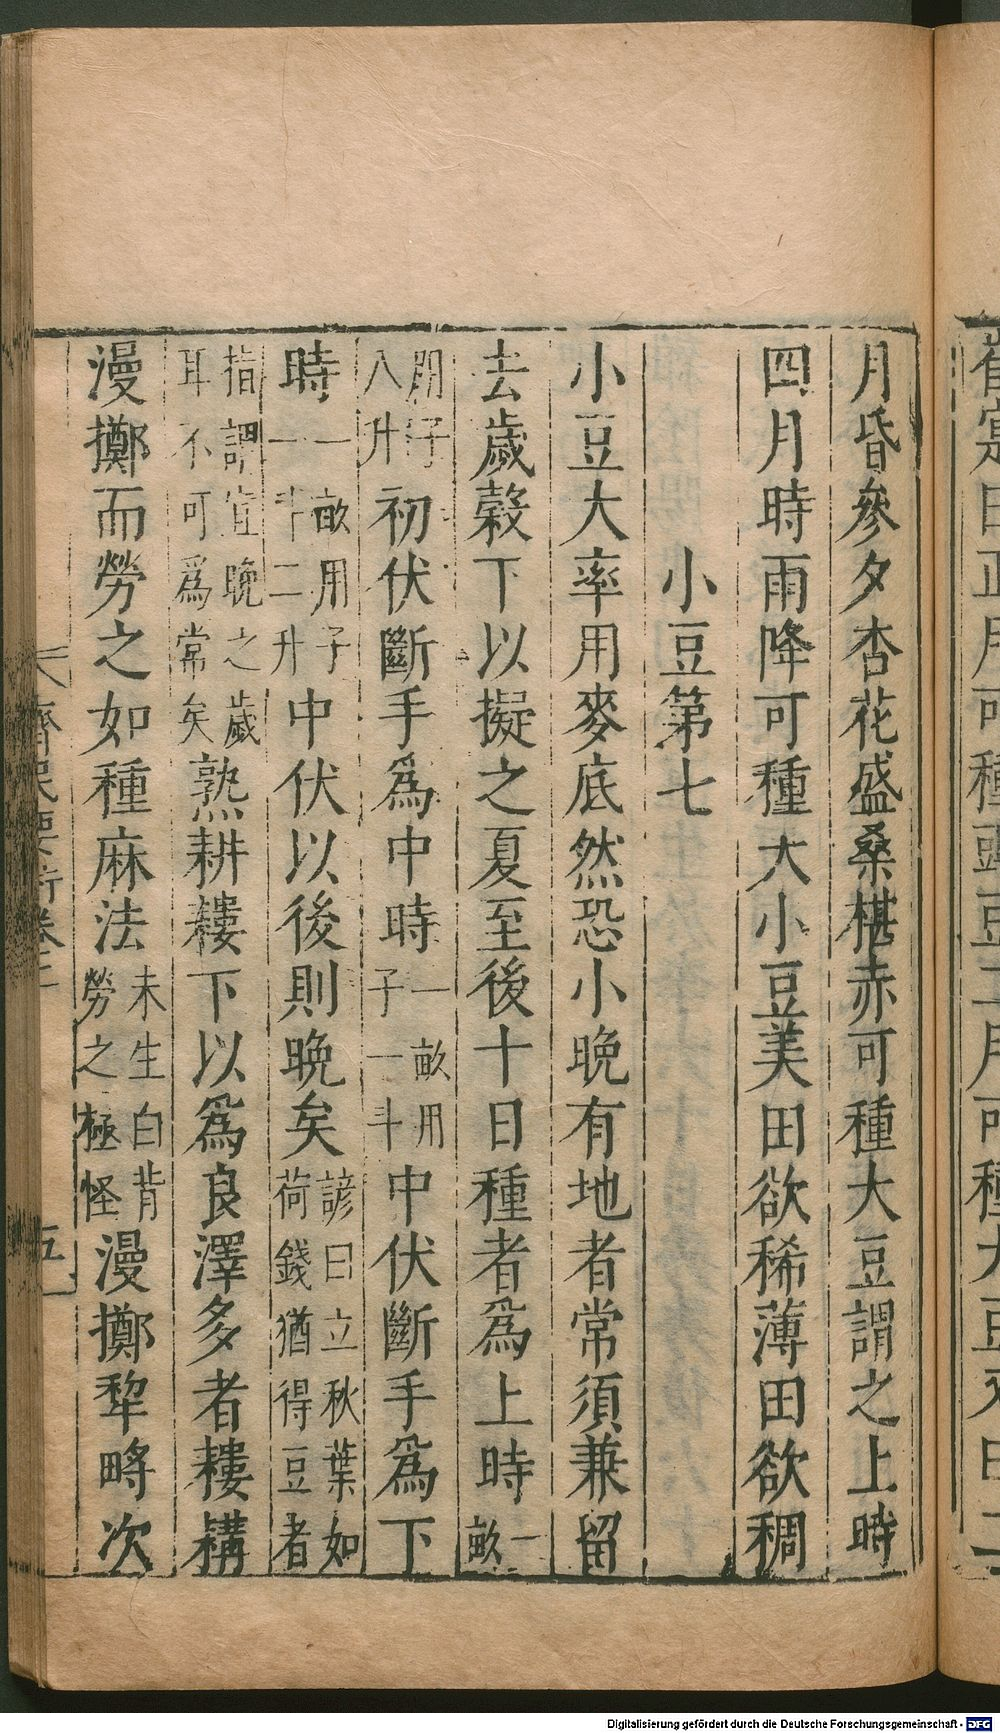 月昏參夕杏花盛桑椹赤可種大豆謂之上時
四月時雨降可種大小豆美田欲稀薄田欲稠
小豆第七
小豆大率用麥底然恐小晚有地者常須兼留
去歲穀下以擬之夏至後十日種者為上時一畝
用子八升初伏斷手為中時一畝用子一斗中伏斷手為下
時一畝用子一斗二升中伏以後則晚矣諺曰立秋葉如荷錢猶得豆者
指謂宜晚之歲耳不可為常矣熟耕耬下以為良澤多者耬耩
漫擲而勞之如種麻法未生白背勞之極怪漫擲犂畤次
齊民要術卷二
五
Digitalisierung gefördert durch die Deutsche Forschungsgemeinschaft - DFG